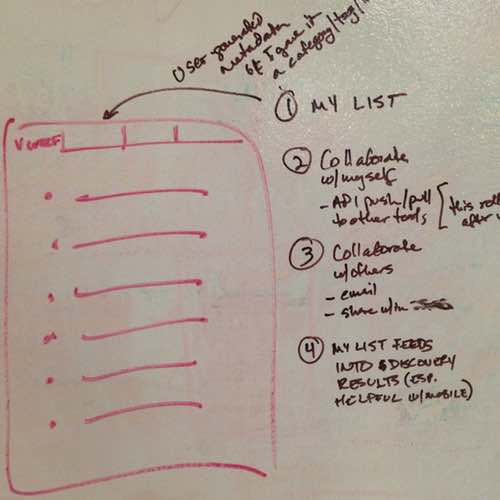 User generated
metadata
bf I gave it
a category/tag/
① MY LIST
② Collaborate
w/myself
- API push/pull [this roll
to other tools after
③ Collaborate
w/others
- email
- share w/in
④ MY LIST FEEDS
INTO DISCOVERY
RESULTS (ESP.
HELPFUL W/MOBILE)